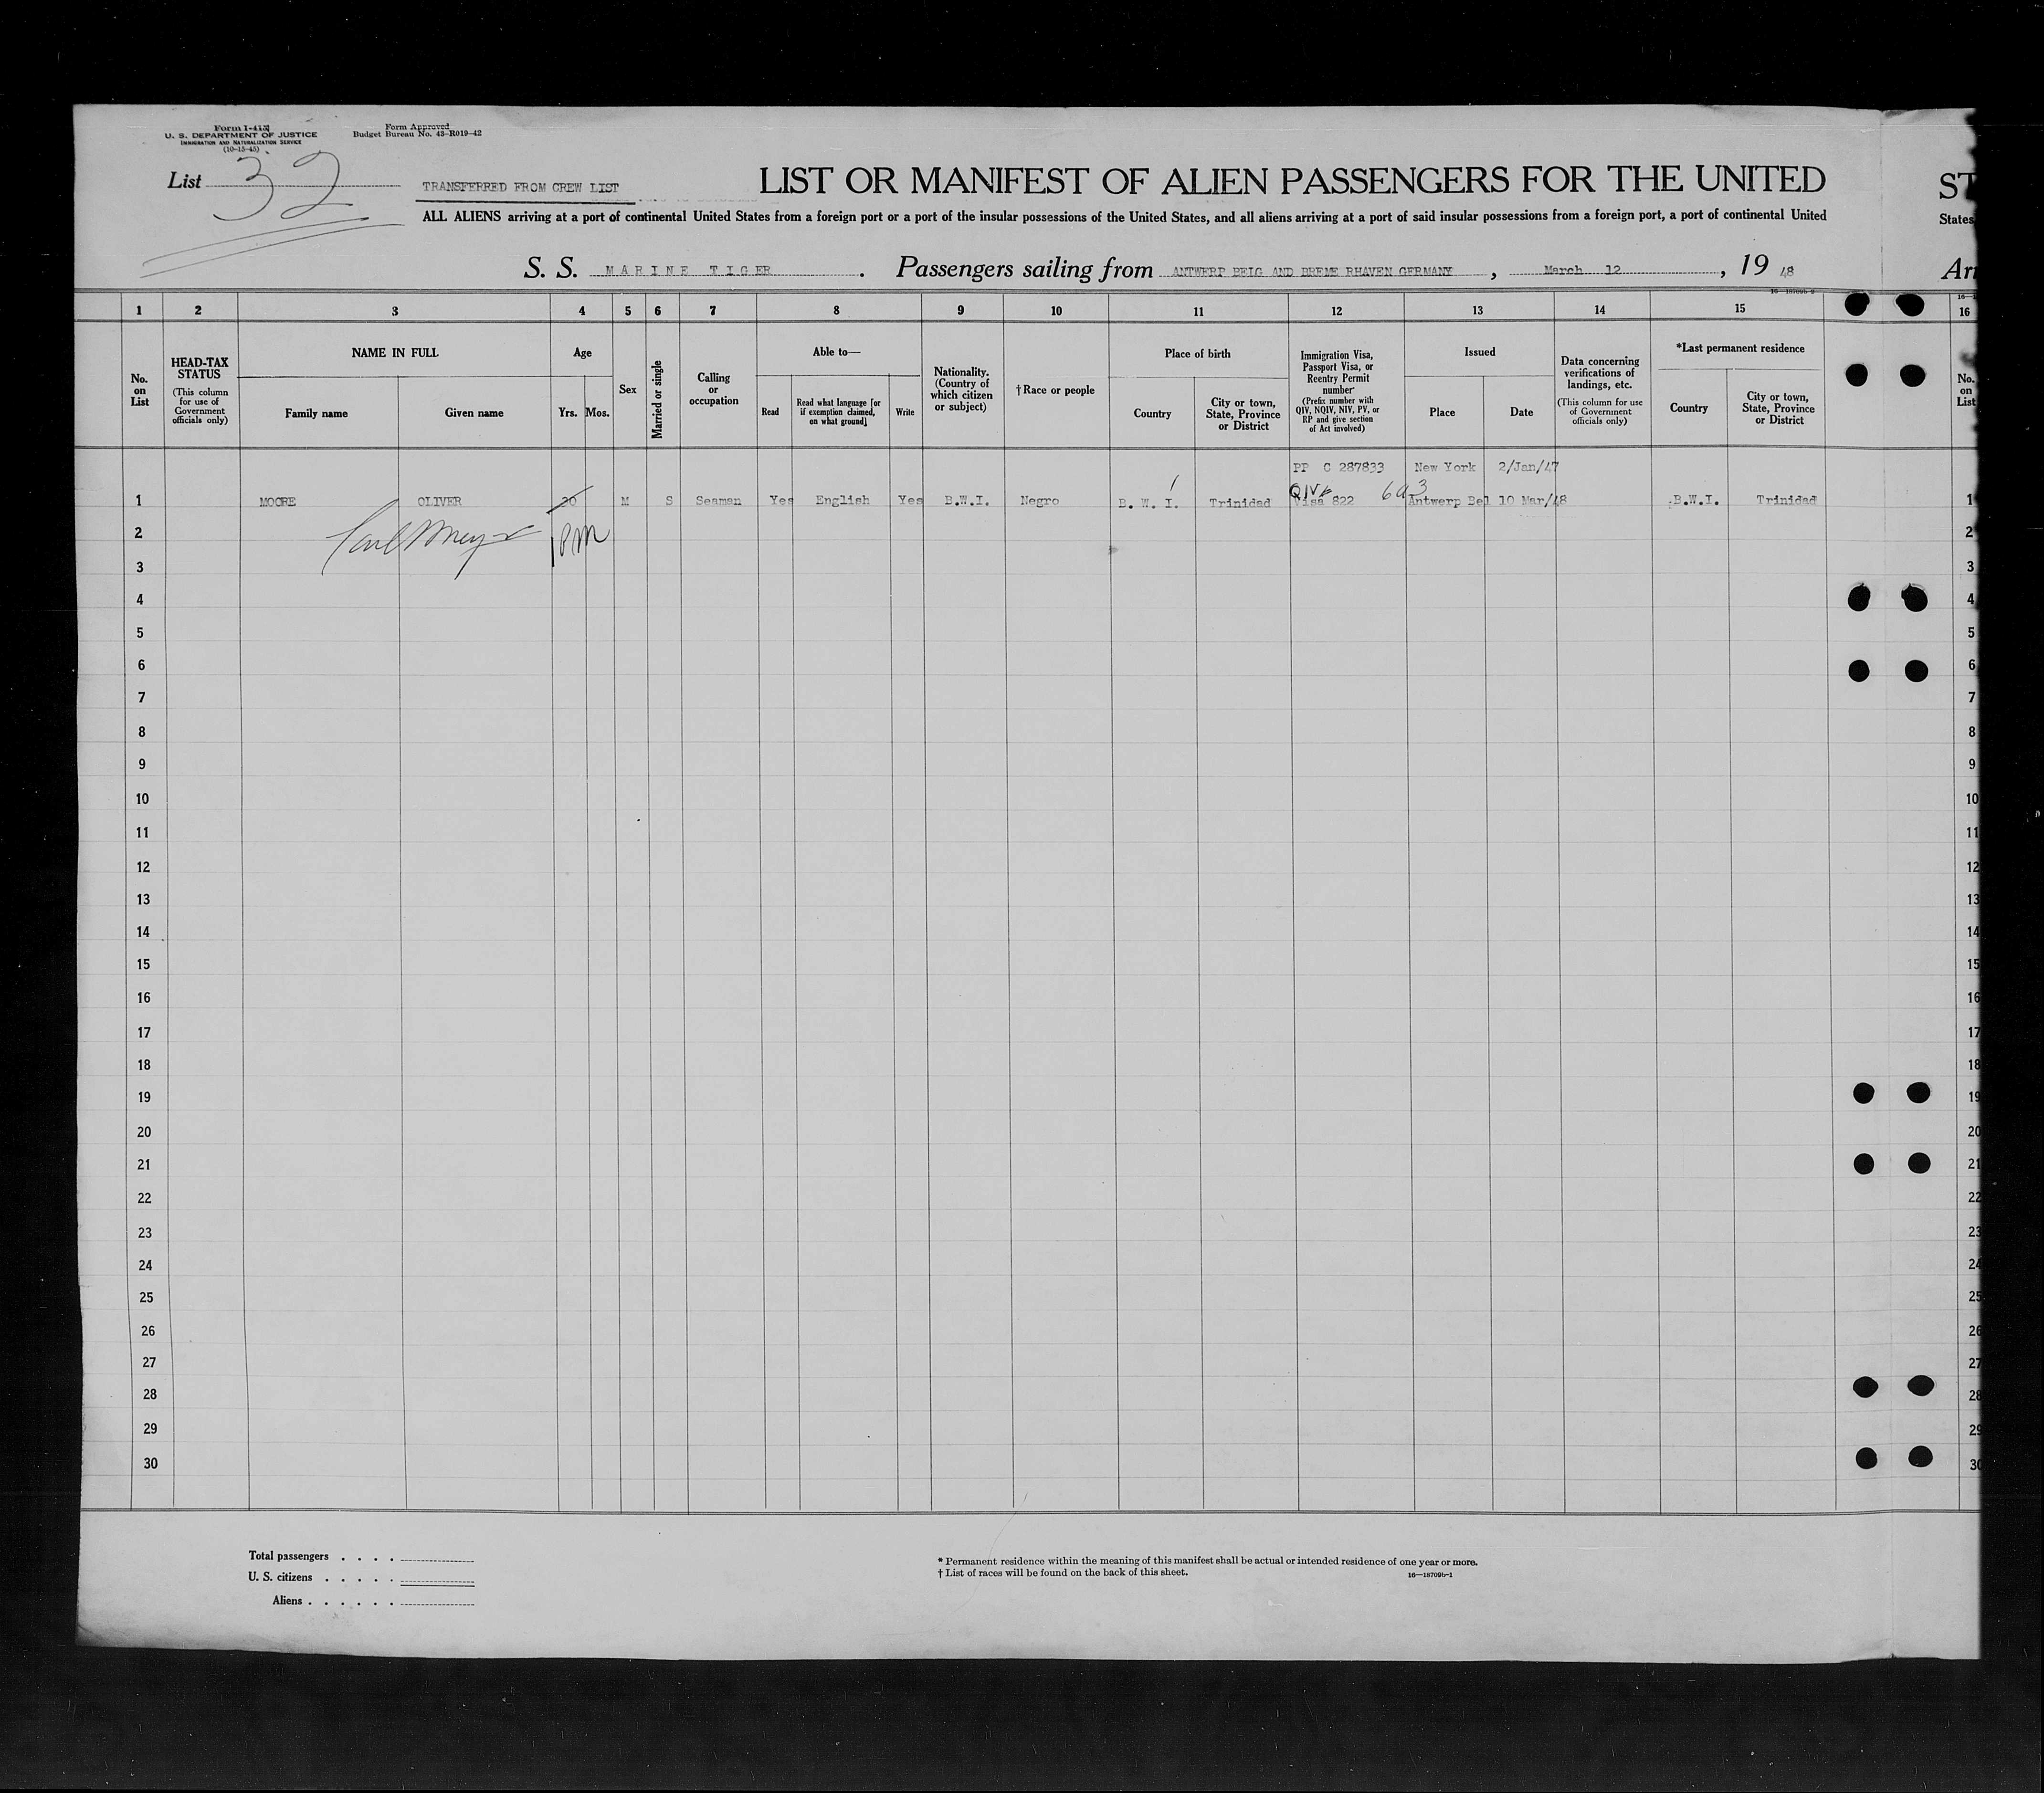 Form I-415
U. S. DEPARTMENT OF JUSTICE
IMMIGRATION AND NATURALIZATION SERVICE
(10-15-45)
Form Approved
Budget Bureau No. 43-R019-42
List 32
TRANSFERRED FROM CREW LIST
LIST OR MANIFEST OF ALIEN PASSENGERS FOR THE UNITED
ST
ALL ALIENS arriving at a port of continental United States from a foreign port or a port of the insular possessions of the United States, and all aliens arriving at a port of said insular possessions from a foreign port, a port of continental United
States
S. S. MARINE TIGER . Passengers sailing from ANTWERP BELG AND BREME RHAVEN GERMANY , March 12 , 19 48
Arr
1 2 3 4 5 6 7 8 9 10 11 12 13 14 15 16
No. on List
HEAD-TAX STATUS
(This column for use of Government officials only)
NAME IN FULL
Family name Given name
Age
Yrs. Mos.
Sex
Married or single
Calling or occupation
Able to—
Read
Read what language [or if exemption claimed, on what ground]
Write
Nationality. (Country of which citizen or subject)
† Race or people
Place of birth
Country
City or town, State, Province or District
Immigration Visa, Passport Visa, or Reentry Permit number
(Prefix number with QIV, NQIV, NIV, PV, or RP and give section of Act involved)
Issued
Place Date
Data concerning verifications of landings, etc.
(This column for use of Government officials only)
*Last permanent residence
Country
City or town, State, Province or District
No. on List
PP C 287833 New York 2/Jan/47
QIV 6a3
1 MOORE OLIVER 20 M S Seaman Yes English Yes B.W.I. Negro B. W. I. Trinidad Visa 822 Antwerp Bel 10 Mar/48 B.W.I. Trinidad 1
2 PM 2
3 3
4 4
5 5
6 6
7 7
8 8
9 9
10 10
11 11
12 12
13 13
14 14
15 15
16 16
17 17
18 18
19 19
20 20
21 21
22 22
23 23
24 24
25 25
26 26
27 27
28 28
29 29
30 30
Total passengers . . . .
U. S. citizens . . . . .
Aliens . . . . . .
* Permanent residence within the meaning of this manifest shall be actual or intended residence of one year or more.
† List of races will be found on the back of this sheet.
16—18709b-1